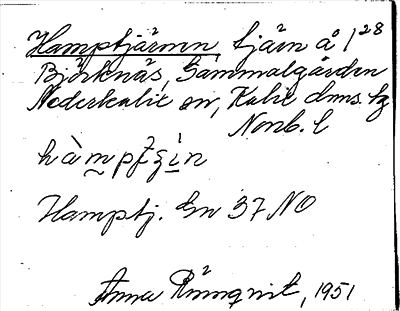 Hamptjärnen, tjärn å 1²⁸
Björknäs, Gammalgården
Nederkalix sn, Kalix dms. tg
Norrb. l
hàmptʂìn
Hamptj. En 37 NO
Anna Rönnqvist, 1951